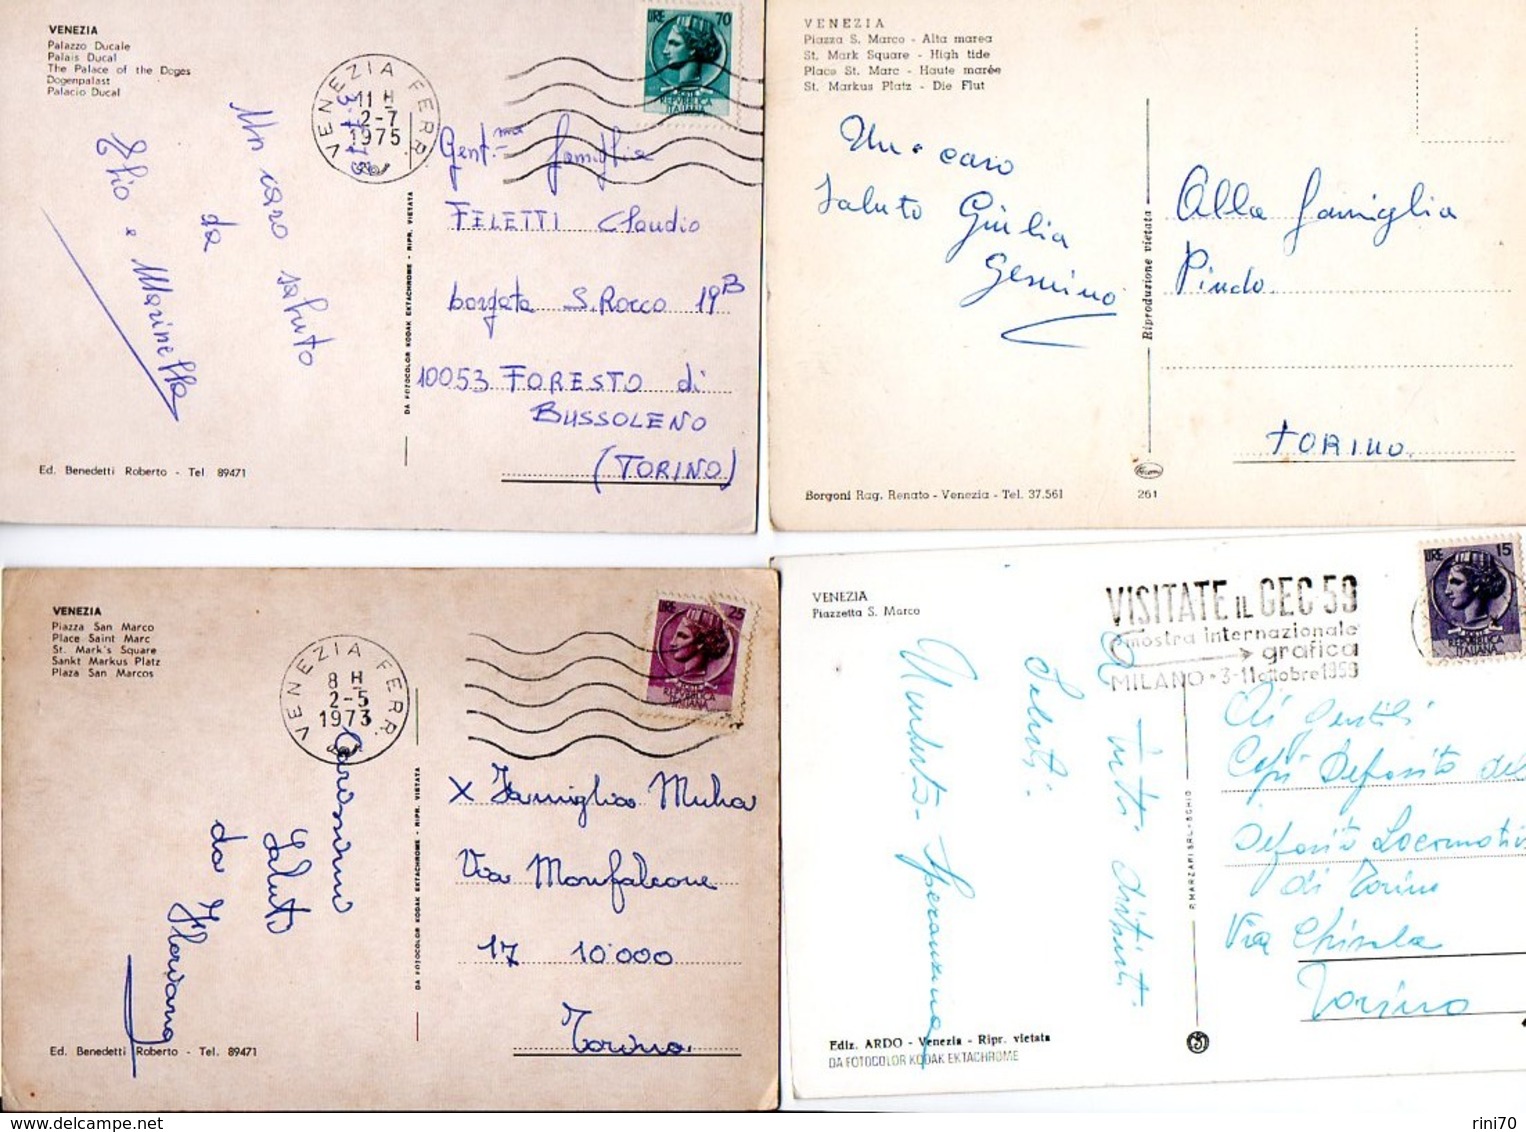 VENEZIA
Palazzo Ducale
Palais Ducal
The Palace of the Doges
Dogenpalast
Palacio Ducal
VENEZIA FERR.
11 H
2-7
1975
3-7-75
LIRE 70
POSTE
REPUBBLICA
ITALIANA
Un caro saluto
da
Elio e Marinella
Gent.ma famiglia
FELETTI Claudio
borgata S. Rocco 19B
10053 FORESTO di
BUSSOLENO
(TORINO)
DA FOTOCOLOR KODAK EKTACHROME - RIPR. VIETATA
Ed. Benedetti Roberto - Tel. 89471
VENEZIA
Piazza S. Marco - Alta marea
St. Mark Square - High tide
Place St. Marc - Haute marèe
St. Markus Platz - Die Flut
Un caro
saluto Giulia
Gesuino
Alla famiglia
Pindo
TORINO.
Riproduzione vietata
Borgoni Rag. Renato - Venezia - Tel. 37.561
261
VENEZIA
Piazza San Marco
Place Saint Marc
St. Mark's Square
Sankt Markus Platz
Plaza San Marcos
VENEZIA FERR.
8 H
2-5
1973
LIRE 25
POSTE
REPUBBLICA
ITALIANA
Carissimo
Saluto
da Floriana
X Famiglia Muha
Via Monfalcone
17 10000
Torino
DA FOTOCOLOR KODAK EKTACHROME - RIPR. VIETATA
Ed. Benedetti Roberto - Tel. 89471
VENEZIA
Piazzetta S. Marco
VISITATE IL GEC 59
mostra internazionale
grafica
MILANO • 3-11 ottobre 1959
LIRE 15
REPUBBLICA
ITALIANA
Saluti
a tutti distinti
Umberto Speranzina
Ai gentili
Capi Deposito del
Deposito Locomotive
di Torino
Via Chisola
Torino
P. MARZARI SRL - SCHIO
Ediz. ARDO - Venezia - Ripr. vietata
DA FOTOCOLOR KODAK EKTACHROME
delcampe.net
rini70